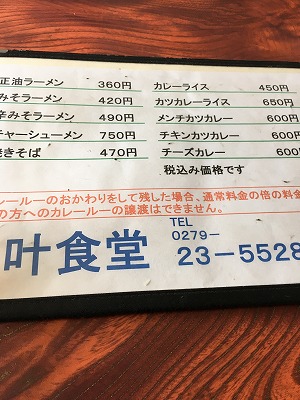 正油ラーメン 360円
みそラーメン 420円
辛みそラーメン 490円
チャーシューメン 750円
焼きそば 470円
カレーライス 450円
カツカレーライス 650円
メンチカツカレー 600円
チキンカツカレー 600円
チーズカレー 600円
税込み価格です
レールーのおかわりをして残した場合、通常料金の倍の料金
の方へのカレールーの譲渡はできません。
叶食堂 TEL 0279-23-5528